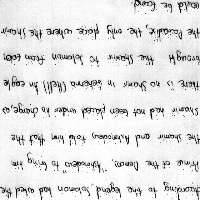 According to the legend, Solomon had asked the
Prince of the Demons, "Ashmodeus" to bring him
the shamir and Ashmodeus told him that the
shamir had not been placed under his charge, as
there is no shamir in Gehenna (Hell). An eagle
brought the shamir to Solomon from Eden
the Paradise, the only place where the shamir
could be found